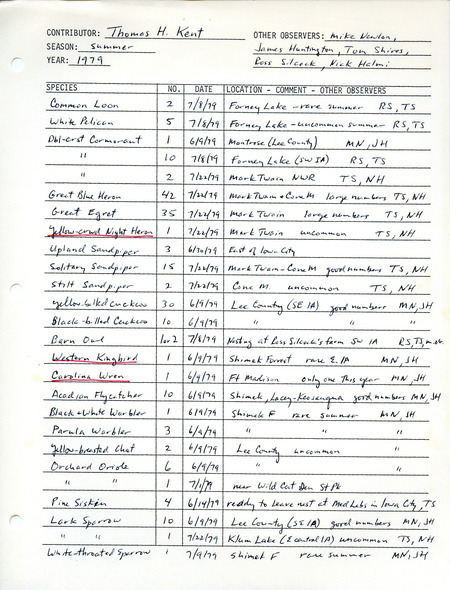 CONTRIBUTOR: Thomas H. Kent OTHER OBSERVERS: Mike Newlon,
SEASON: Summer James Huntington, Tom Shires,
YEAR: 1979 Ross Silcock, Nick Halmi
SPECIES NO. DATE LOCATION - COMMENT - OTHER OBSERVERS
Common Loon 2 7/8/79 Forney Lake - rare summer RS, TS
White Pelican 5 7/8/79 Forney Lake - uncommon summer RS, TS
Dbl-crst Cormorant 1 6/9/79 Montrose (Lee County) MN, JH
" 10 7/8/79 Forney Lake (SW IA) RS, TS
" 2 7/22/79 Mark Twain NWR TS, NH
Great Blue Heron 42 7/22/79 Mark Twain + Cone M large numbers TS, NH
Great Egret 35 7/22/79 Mark Twain large numbers TS, NH
Yellow-crwnd Night Heron 1 7/22/79 Mark Twain uncommon TS, NH
Upland Sandpiper 3 6/30/79 East of Iowa City
Solitary Sandpiper 15 7/22/79 Mark Twain - Cone M good numbers TS, NH
Stilt Sandpiper 2 7/22/79 Cone M. uncommon TS, NH
Yellow-billed Cuckoo 30 6/9/79 Lee County (SE IA) good numbers MN, JH
Black-billed Cuckoo 10 6/9/79 " " "
Barn Owl 1 or 2 7/8/79 Nesting at Ross Silcock's farm SW IA RS, TS,
Western Kingbird 1 6/9/79 Shimek Forrest rare E. IA MN, JH
Carolina Wren 1 6/9/79 Ft Madison only one this year MN, JH
Acadian Flycatcher 10 6/9/79 Shimek, Lacey-Keosauqua good numbers MN, JH
Black + White Warbler 1 6/9/79 Shimek F rare summer MN, JH
Parula Warbler 3 6/9/79 " " "
Yellow-breasted Chat 2 6/9/79 Lee County uncommon "
Orchard Oriole 6 6/9/79 " "
" " 1 7/1/79 near Wild Cat Den St Pk
Pine Siskin 4 6/14/79 ready to leave nest at Med Labs in Iowa City, TS
Lark Sparrow 10 6/9/79 Lee County (SE IA) good numbers MN, JH
" " 1 7/22/79 Klum Lake (E central IA) uncommon TS, NH
White-throated Sparrow 1 7/9/79 Shimek F rare summer MN, JH